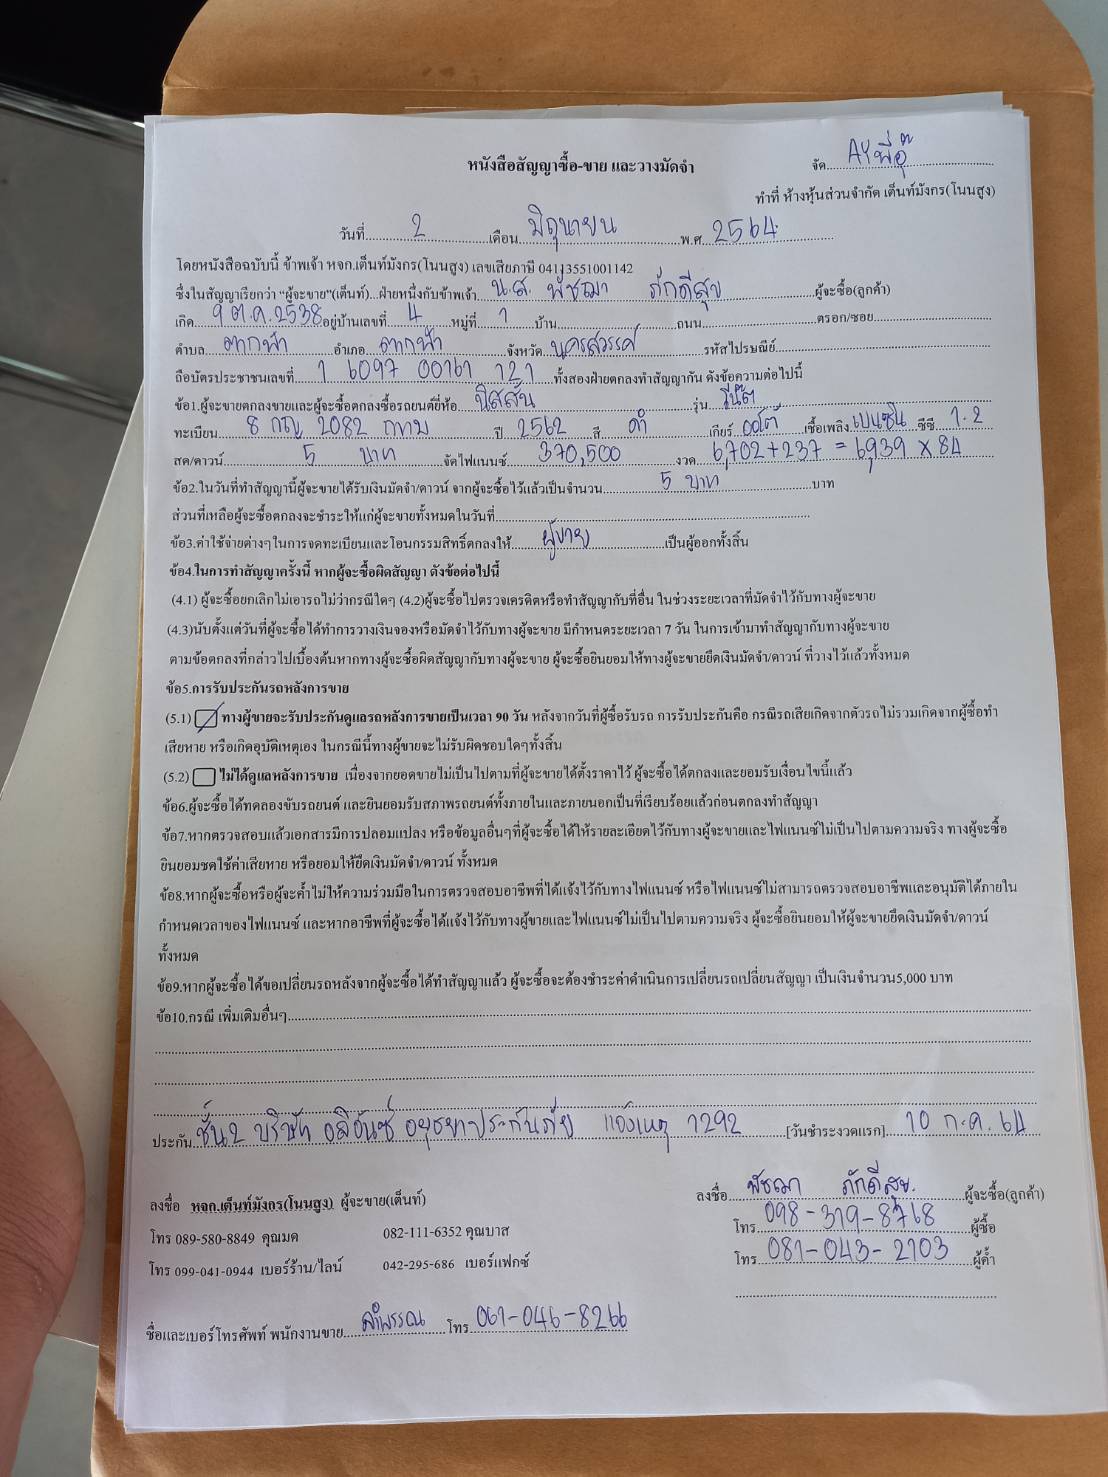 หนังสือสัญญาซื้อ-ขาย และวางมัดจำ
จัด AYพี่อุ๊
ทำที่ ห้างหุ้นส่วนจำกัด เต็นท์มังกร(โนนสูง)
วันที่ 2 เดือน มิถุนายน พ.ศ. 2564
โดยหนังสือฉบับนี้ ข้าพเจ้า หจก.เต็นท์มังกร(โนนสูง) เลขเสียภาษี 04113551001142
ซึ่งในสัญญาเรียกว่า "ผู้จะขาย"(เต็นท์)...ฝ่ายหนึ่งกับข้าพเจ้า น.ส. พัชฌา ภักดีสุข ผู้จะซื้อ(ลูกค้า)
เกิด 9 ต.ค. 2538 อยู่บ้านเลขที่ 4 หมู่ที่ 1 บ้าน ถนน ตรอก/ซอย
ตำบล ตากฟ้า อำเภอ ตากฟ้า จังหวัด นครสวรรค์ รหัสไปรษณีย์
ถือบัตรประชาชนเลขที่ 1 6097 00161 121 ทั้งสองฝ่ายตกลงทำสัญญากัน ดังข้อความต่อไปนี้
ข้อ1.ผู้จะขายตกลงขายและผู้จะซื้อตกลงซื้อรถยนต์ยี่ห้อ นิสสัน รุ่น
ทะเบียน 8 กญ 2082 กทม ปี 2562 สี ดำ เกียร์ ออโต้ เชื้อเพลิง เบนซิน ซีซี 1.2
สด/ดาวน์ 5 บาท จัดไฟแนนซ์ 370,500 งวด 6,702+237 = 6,939 x 84
ข้อ2.ในวันที่ทำสัญญานี้ผู้จะขายได้รับเงินมัดจำ/ดาวน์ จากผู้จะซื้อไว้แล้วเป็นจำนวน 5 บาท บาท
ส่วนที่เหลือผู้จะซื้อตกลงจะชำระให้แก่ผู้จะขายทั้งหมดในวันที่
ข้อ3.ค่าใช้จ่ายต่างๆในการจดทะเบียนและโอนกรรมสิทธิ์ตกลงให้ ผู้ขาย เป็นผู้ออกทั้งสิ้น
ข้อ4.ในการทำสัญญาครั้งนี้ หากผู้จะซื้อผิดสัญญา ดังข้อต่อไปนี้
(4.1) ผู้จะซื้อยกเลิกไม่เอารถไม่ว่ากรณีใดๆ (4.2)ผู้จะซื้อไปตรวจเครดิตหรือทำสัญญากับที่อื่น ในช่วงระยะเวลาที่มัดจำไว้กับทางผู้จะขาย
(4.3)นับตั้งแต่วันที่ผู้จะซื้อได้ทำการวางเงินจองหรือมัดจำไว้กับทางผู้จะขาย มีกำหนดระยะเวลา 7 วัน ในการเข้ามาทำสัญญากับทางผู้จะขาย
ตามข้อตกลงที่กล่าวไปเบื้องต้นหากทางผู้จะซื้อผิดสัญญากับทางผู้จะขาย ผู้จะซื้อยินยอมให้ทางผู้จะขายยึดเงินมัดจำ/ดาวน์ ที่วางไว้แล้วทั้งหมด
ข้อ5.การรับประกันรถหลังการขาย
(5.1) ทางผู้ขายจะรับประกันดูแลรถหลังการขายเป็นเวลา 90 วัน หลังจากวันที่ผู้ซื้อรับรถ การรับประกันคือ กรณีรถเสียเกิดจากตัวรถไม่รวมเกิดจากผู้ซื้อทำ
เสียหาย หรือเกิดอุบัติเหตุเอง ในกรณีนี้ทางผู้ขายจะไม่รับผิดชอบใดๆทั้งสิ้น
(5.2) ไม่ได้ดูแลหลังการขาย เนื่องจากยอดขายไม่เป็นไปตามที่ผู้จะขายได้ตั้งราคาไว้ ผู้จะซื้อได้ตกลงและยอมรับเงื่อนไขนี้แล้ว
ข้อ6.ผู้จะซื้อได้ทดลองขับรถยนต์ และยินยอมรับสภาพรถยนต์ทั้งภายในและภายนอกเป็นที่เรียบร้อยแล้วก่อนตกลงทำสัญญา
ข้อ7.หากตรวจสอบแล้วเอกสารมีการปลอมแปลง หรือข้อมูลอื่นๆที่ผู้จะซื้อได้ให้รายละเอียดไว้กับทางผู้จะขายและไฟแนนซ์ไม่เป็นไปตามความจริง ทางผู้จะซื้อ
ยินยอมชดใช้ค่าเสียหาย หรือยอมให้ยึดเงินมัดจำ/ดาวน์ ทั้งหมด
ข้อ8.หากผู้จะซื้อหรือผู้จะค้ำไม่ให้ความร่วมมือในการตรวจสอบอาชีพที่ได้แจ้งไว้กับทางไฟแนนซ์ หรือไฟแนนซ์ไม่สามารถตรวจสอบอาชีพและอนุมัติได้ภายใน
กำหนดเวลาของไฟแนนซ์ และหากอาชีพที่ผู้จะซื้อได้แจ้งไว้กับทางผู้ขายและไฟแนนซ์ไม่เป็นไปตามความจริง ผู้จะซื้อยินยอมให้ผู้จะขายยึดเงินมัดจำ/ดาวน์
ทั้งหมด
ข้อ9.หากผู้จะซื้อได้ขอเปลี่ยนรถหลังจากผู้จะซื้อได้ทำสัญญาแล้ว ผู้จะซื้อจะต้องชำระค่าดำเนินการเปลี่ยนรถเปลี่ยนสัญญา เป็นเงินจำนวน5,000 บาท
ข้อ10.กรณี เพิ่มเติมอื่นๆ
ประกัน ชั้น2 บริษัท อลิอันซ์ อยุธยาประกันภัย แจ้งเหตุ 1292 [วันชำระงวดแรก] 10 ก.ค. 64
ลงชื่อ หจก.เต็นท์มังกร(โนนสูง) ผู้จะขาย(เต็นท์) ลงชื่อ พัชฌา ภักดีสุข ผู้จะซื้อ(ลูกค้า)
โทร 089-580-8849 คุณมด 082-111-6352 คุณบาส โทร 098-319-8768 ผู้ซื้อ
โทร 099-041-0944 เบอร์ร้าน/ไลน์ 042-295-686 เบอร์แฟกซ์ โทร 081-043-2103 ผู้ค้ำ
ชื่อและเบอร์โทรศัพท์ พนักงานขาย ลำพรรณ โทร 061-046-8266